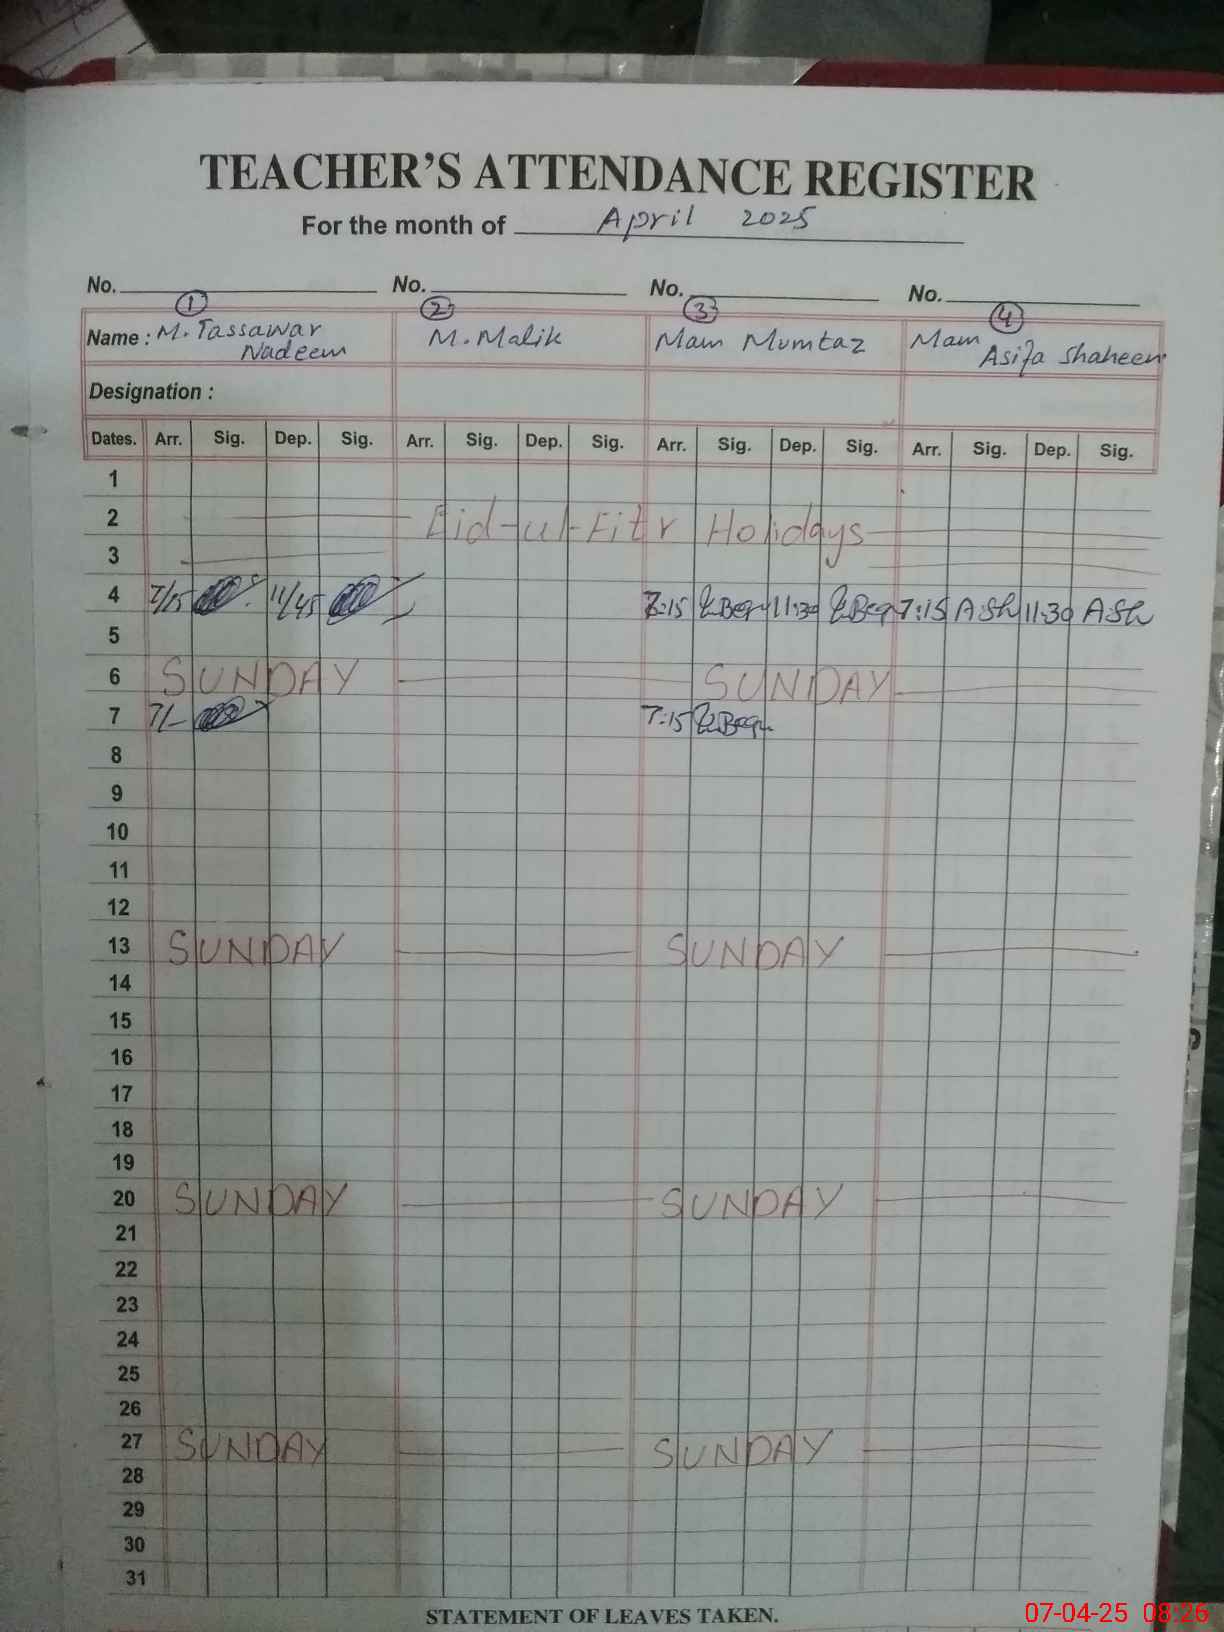 TEACHER'S ATTENDANCE REGISTER
For the month of April 2025
No. No. No. No.
1 2 3 4
Name : M. Tassawar Nadeem M. Malik Mam Mumtaz Mam Asifa Shaheen
Designation :
Dates. Arr. Sig. Dep. Sig. Arr. Sig. Dep. Sig. Arr. Sig. Dep. Sig. Arr. Sig. Dep. Sig.
1
2 Eid-ul-Fitr Holidays
3
4 7/15 11/45 7:15 11:30 7:15 A.Sh 11:30 A.Sh
5
6 SUNDAY SUNDAY
7 7/- 7:15
8
9
10
11
12
13 SUNDAY SUNDAY
14
15
16
17
18
19
20 SUNDAY SUNDAY
21
22
23
24
25
26
27 SUNDAY SUNDAY
28
29
30
31
STATEMENT OF LEAVES TAKEN.
07-04-25 08:26